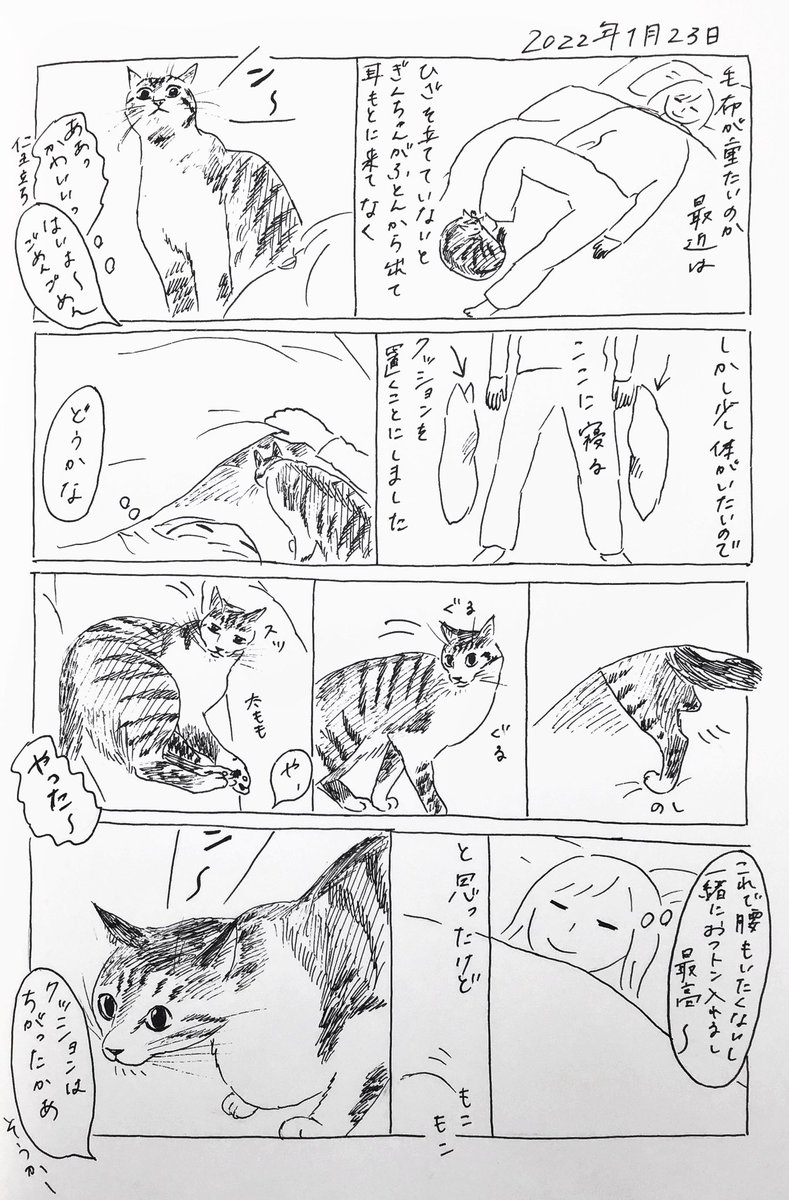 2022年1月23日
毛布が重たいのか
最近は
ひざを立てていないと
ぎんちゃんがふとんから出て
耳もとに来てなく
ン〜
ああっ
かわいいっ
仁王立ち
はいは〜
ごめんごめん
しかし少し体がいたいので
ここに寝る
クッションを
置くことにしました
どうかな
のし
ぐる
ぐる
スッ
太もも
やー
やった〜
これで腰もいたくないし
一緒におフトン入れるし
最高〜
と思ったけど
もこ
もこ
ン〜
クッションは
ちがったかぁ
そうかー